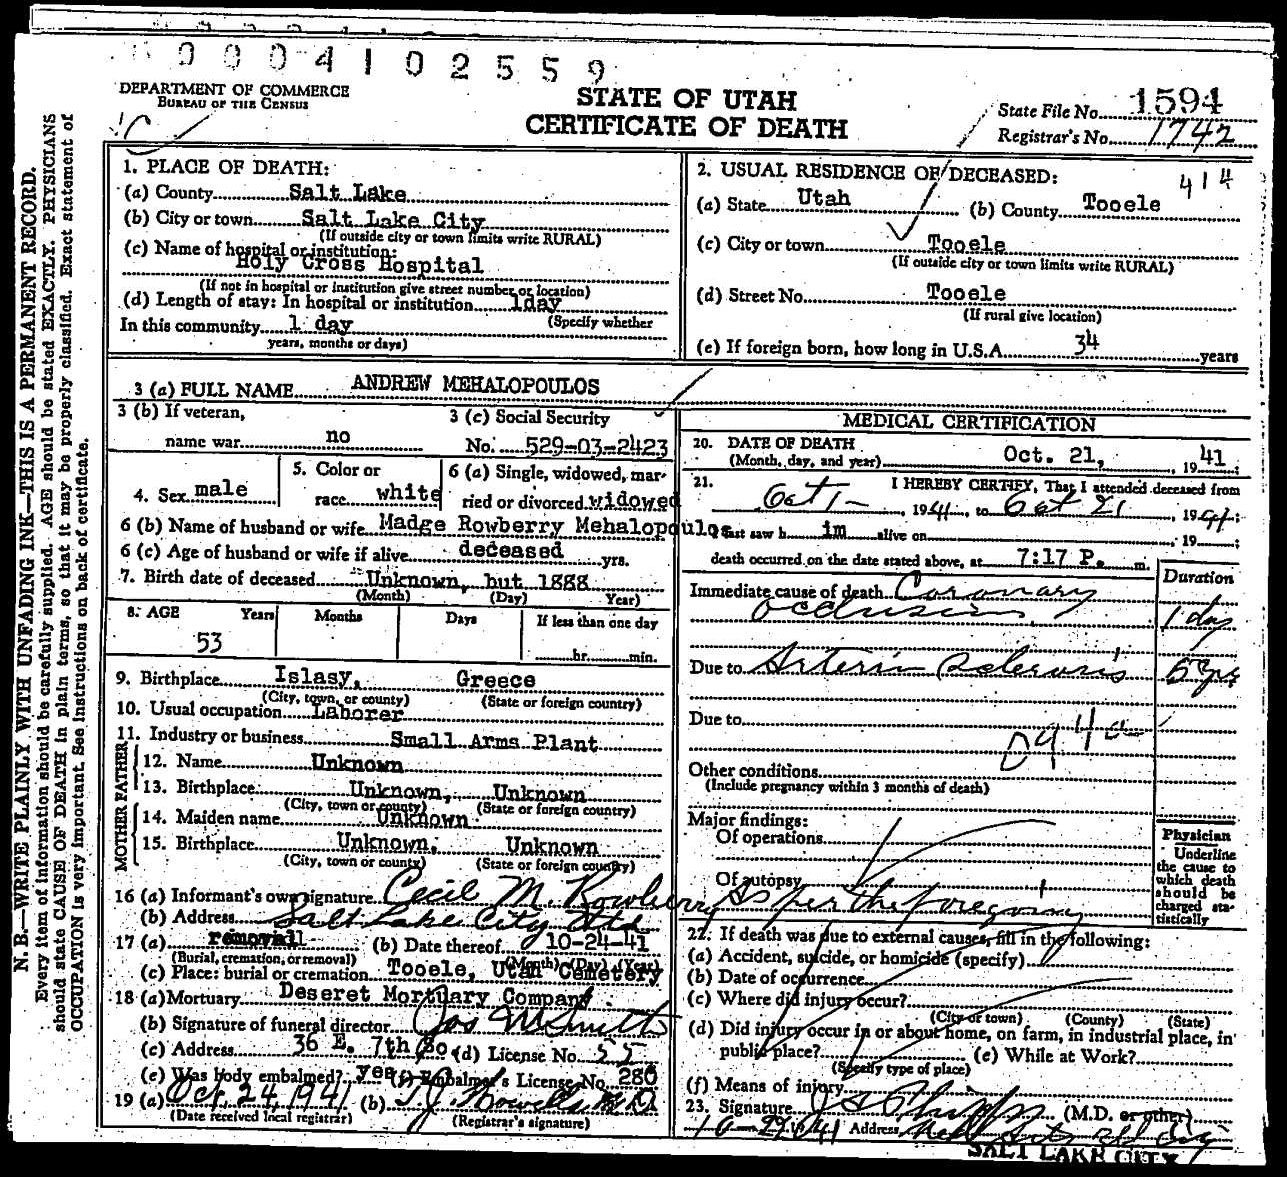 0004102559
DEPARTMENT OF COMMERCE
BUREAU OF THE CENSUS
STATE OF UTAH
CERTIFICATE OF DEATH
State File No. 1594
Registrar's No. 1742
N. B.—WRITE PLAINLY WITH UNFADING INK—THIS IS A PERMANENT RECORD.
Every item of information should be carefully supplied. AGE should be stated EXACTLY. PHYSICIANS
should state CAUSE OF DEATH in plain terms, so that it may be properly classified. Exact statement of
OCCUPATION is very important. See instructions on back of certificate.
1. PLACE OF DEATH:
(a) County Salt Lake
(b) City or town Salt Lake City
(If outside city or town limits write RURAL)
(c) Name of hospital or institution:
Holy Cross Hospital
(If not in hospital or institution give street number or location)
(d) Length of stay: In hospital or institution 1 day
(Specify whether
In this community 1 day
years, months or days)
2. USUAL RESIDENCE OF DECEASED:
414
(a) State Utah (b) County Tooele
(c) City or town Tooele
(If outside city or town limits write RURAL)
(d) Street No. Tooele
(If rural give location)
(e) If foreign born, how long in U.S.A. 34 years
3 (a) FULL NAME ANDREW MEHALOPOULOS
3 (b) If veteran,
name war no
3 (c) Social Security
No. 529-03-2423
4. Sex male
5. Color or
race white
6 (a) Single, widowed, mar-
ried or divorced widowed
6 (b) Name of husband or wife Madge Rowberry Mehalopoulos
6 (c) Age of husband or wife if alive deceased yrs.
7. Birth date of deceased Unknown, but 1888
(Month) (Day) Year)
8. AGE Years Months Days If less than one day
53
hr. min.
9. Birthplace Islasy, Greece
(City, town, or county) (State or foreign country)
10. Usual occupation Laborer
11. Industry or business Small Arms Plant
FATHER
12. Name Unknown
13. Birthplace Unknown, Unknown
(City, town or county) (State or foreign country)
MOTHER
14. Maiden name Unknown
15. Birthplace Unknown, Unknown
(City, town or county) (State or foreign country)
16 (a) Informant's own signature Cecil M. Rowberry
(b) Address Salt Lake City Utd
17 (a) removal (b) Date thereof 10-24-41
(Burial, cremation, or removal) (Month) (Day) (Year)
(c) Place: burial or cremation Tooele, Utah Cemetery
18 (a) Mortuary Deseret Mortuary Company
(b) Signature of funeral director Jos
(c) Address 36 E. 7th So (d) License No. 55
(e) Was body embalmed? yes (f) Embalmer's License No. 280
19 (a) Oct 24, 1941 (b) T.J. Howells M.D.
(Date received local registrar) (Registrar's signature)
MEDICAL CERTIFICATION
20. DATE OF DEATH
(Month, day, and year) Oct. 21, 1941
21. I HEREBY CERTIFY, That I attended deceased from
Oct 1 - , 1941, to Oct 21 , 1941;
I last saw h im alive on , 19 ;
death occurred on the date stated above, at 7:17 P. m.
Duration
Immediate cause of death Coronary
occlusion 1 day
Due to Arterio Sclerosis 5 yrs
Due to
094a
Other conditions
(Include pregnancy within 3 months of death)
Major findings:
Of operations
Of autopsy
As per the foregoing
Physician
Underline
the cause to
which death
should be
charged sta-
tistically
22. If death was due to external causes, fill in the following:
(a) Accident, suicide, or homicide (specify)
(b) Date of occurrence
(c) Where did injury occur?
(City or town) (County) (State)
(d) Did injury occur in or about home, on farm, in industrial place, in
public place? (e) While at Work?
(Specify type of place)
(f) Means of injury
23. Signature (M.D. or other)
Address
SALT LAKE CITY